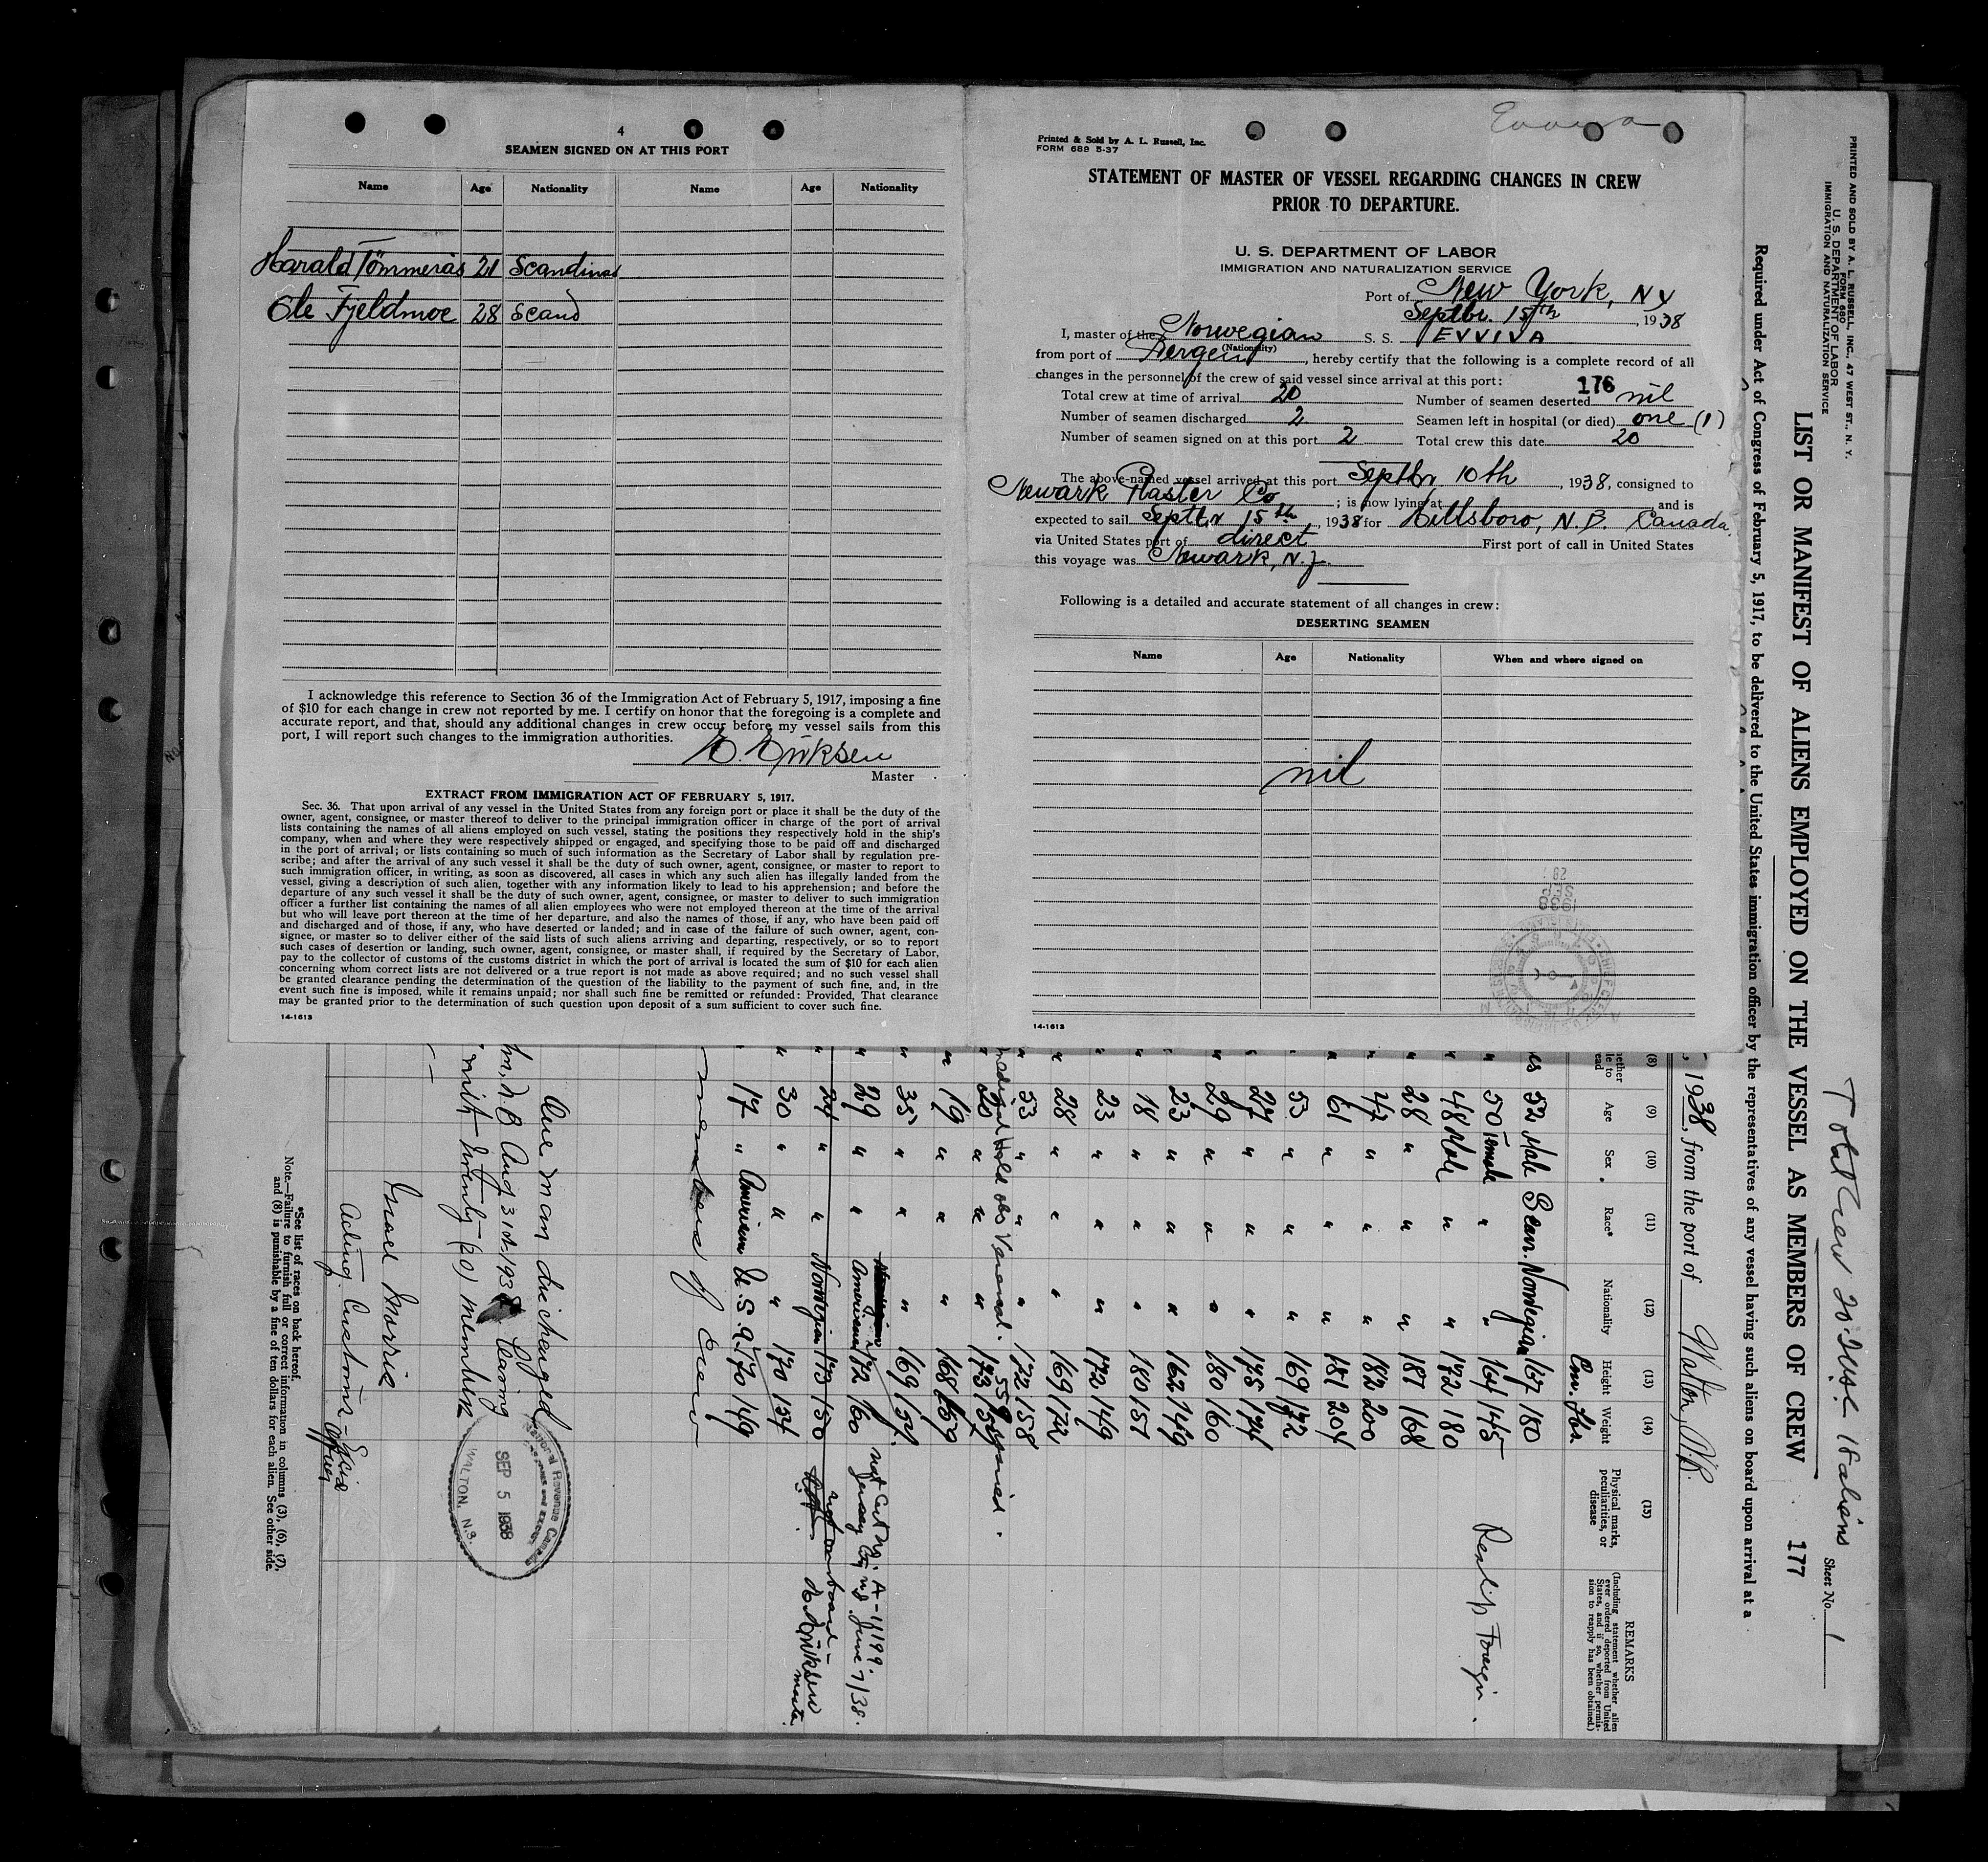 4
SEAMEN SIGNED ON AT THIS PORT
Name Age Nationality Name Age Nationality
Harald Tömmerås 21 Scandinav
Ole Fjeldmoe 28 Scand
I acknowledge this reference to Section 36 of the Immigration Act of February 5, 1917, imposing a fine
of $10 for each change in crew not reported by me. I certify on honor that the foregoing is a complete and
accurate report, and that, should any additional changes in crew occur before my vessel sails from this
port, I will report such changes to the immigration authorities.
Eriksen
Master
EXTRACT FROM IMMIGRATION ACT OF FEBRUARY 5, 1917.
Sec. 36. That upon arrival of any vessel in the United States from any foreign port or place it shall be the duty of the
owner, agent, consignee, or master thereof to deliver to the principal immigration officer in charge of the port of arrival
lists containing the names of all aliens employed on such vessel, stating the positions they respectively hold in the ship's
company, when and where they were respectively shipped or engaged, and specifying those to be paid off and discharged
in the port of arrival; or lists containing so much of such information as the Secretary of Labor shall by regulation pre-
scribe; and after the arrival of any such vessel it shall be the duty of such owner, agent, consignee, or master to report to
such immigration officer, in writing, as soon as discovered, all cases in which any such alien has illegally landed from the
vessel, giving a description of such alien, together with any information likely to lead to his apprehension; and before the
departure of any such vessel it shall be the duty of such owner, agent, consignee, or master to deliver to such immigration
officer a further list containing the names of all alien employees who were not employed thereon at the time of the arrival
but who will leave port thereon at the time of her departure, and also the names of those, if any, who have been paid off
and discharged and of those, if any, who have deserted or landed; and in case of the failure of such owner, agent, con-
signee, or master so to deliver either of the said lists of such aliens arriving and departing, respectively, or so to report
such cases of desertion or landing, such owner, agent, consignee, or master shall, if required by the Secretary of Labor,
pay to the collector of customs of the customs district in which the port of arrival is located the sum of $10 for each alien
concerning whom correct lists are not delivered or a true report is not made as above required; and no such vessel shall
be granted clearance pending the determination of the question of the liability to the payment of such fine, and, in the
event such fine is imposed, while it remains unpaid; nor shall such fine be remitted or refunded: Provided, That clearance
may be granted prior to the determination of such question upon deposit of a sum sufficient to cover such fine.
14-1613
Evviva
Printed & Sold by A. L. Russell, Inc.
FORM 689 5-37
STATEMENT OF MASTER OF VESSEL REGARDING CHANGES IN CREW
PRIOR TO DEPARTURE.
U. S. DEPARTMENT OF LABOR
IMMIGRATION AND NATURALIZATION SERVICE
Port of New York, NY
Septbr. 15th, 1938
I, master of the Norwegian S. S. EVVIVA
(Nationality)
from port of Bergen, hereby certify that the following is a complete record of all
changes in the personnel of the crew of said vessel since arrival at this port:
176
Total crew at time of arrival 20 Number of seamen deserted nil
Number of seamen discharged 2 Seamen left in hospital (or died) one (1)
Number of seamen signed on at this port 2 Total crew this date 20
The above-named vessel arrived at this port Septbr 10th, 1938, consigned to
Newark Plaster Co; is now lying at and is
expected to sail Septbr 15th, 1938 for Hillsboro, N.B. Canada
via United States port of direct First port of call in United States
this voyage was Newark, N.J.
Following is a detailed and accurate statement of all changes in crew:
DESERTING SEAMEN
Name Age Nationality When and where signed on
nil
1938
SEP
14-1613
PRINTED AND SOLD BY A. L. RUSSELL, INC., 47 WEST ST., N. Y.
FORM 680
U. S. DEPARTMENT OF LABOR
IMMIGRATION AND NATURALIZATION SERVICE
Total Crew 20 18 aliens
Sheet No. 1
LIST OR MANIFEST OF ALIENS EMPLOYED ON THE VESSEL AS MEMBERS OF CREW 177
Required under Act of Congress of February 5, 1917, to be delivered to the United States immigration officer by the representatives of any vessel having such aliens on board upon arrival at a
, 1938, from the port of Walton, N.S.
(8) (9) (10) (11) (12) (13) (14) (15)
Age Sex Race* Nationality Height Weight Physical marks, peculiarities, or disease
REMARKS
(Including statement whether alien ever ordered deported from United States, and if so, whether permission to reapply has been obtained.)
Cm. Lbs.
52 Male Scan. Norwegian 167 180
50 Female " " 164 145
48 Male " " 172 180
28 " " " 187 168
47 " " " 182 200
61 " " " 181 204
53 " " " 169 172
27 " " " 175 174
29 " " " 180 160
23 " " " 162 149
18 " " " 180 157
23 " " " 172 149
28 " " " 169 172
53 " " " 172 158
20 " " " 173
19 " " " 168 159
35 " " " 169 159
29 " " American 172 160
24 " " Norwegian 173 150
30 " " " 170 154
17 " American U.S.A. 170 149
members of crew
not on board
Eriksen
master
One man discharged
N.B. Aug 31st 1938 Clearing
with twenty (20) members
Israel Morris
Acting Customs-Excise
Officer
National Revenue Canada
SEP 5 1938
WALTON, N.S.
*See list of races on back hereof.
Note.—Failure to furnish full or correct information in columns (3), (6), (7),
and (8) is punishable by a fine of ten dollars for each alien. See other side.